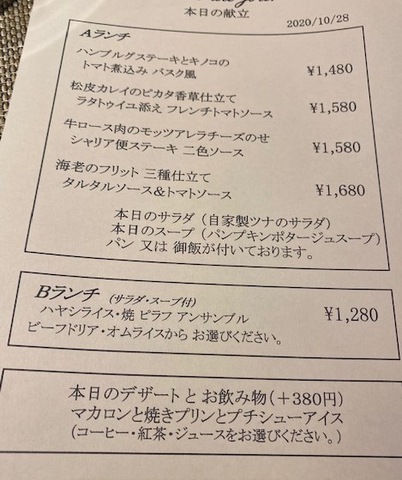 本日の献立
2020/10/28
Aランチ
ハンブルグステーキとキノコの
トマト煮込み バスク風 ¥1,480
松皮カレイのピカタ香草仕立て
ラタトゥイユ添え フレンチトマトソース ¥1,580
牛ロース肉のモッツアレラチーズのせ
シャリア便ステーキ 二色ソース ¥1,580
海老のフリット 三種仕立て
タルタルソース&トマトソース ¥1,680
本日のサラダ（自家製ツナのサラダ）
本日のスープ（パンプキンポタージュスープ）
パン 又は 御飯が付いております。
Bランチ (サラダ・スープ付)
ハヤシライス・焼 ピラフ アンサンブル ¥1,280
ビーフドリア・オムライスから お選びください。
本日のデザート と お飲み物(＋380円)
マカロンと焼きプリンとプチシューアイス
(コーヒー・紅茶・ジュースをお選びください。)